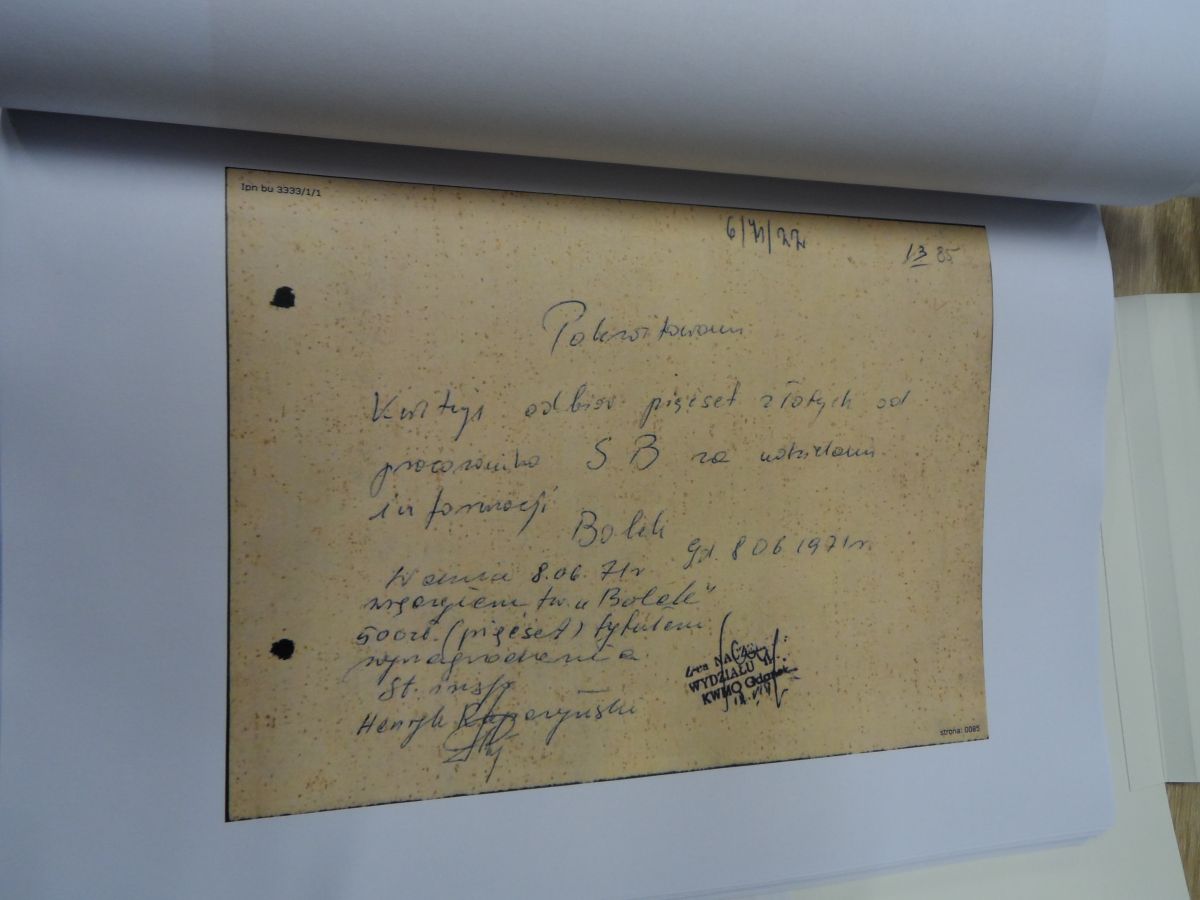 Ipn bu 3333/1/1
6/71/22
13 85
Pokwitowani
Kwituje odbior pięćset złotych od
pracownika SB za udzielani
informacji
Bolek
Gd. 8 06 1971 r.
W dniu 8.06.71 r.
wręczyłem tw. "Bolek"
500 zł. (pięćset) tytułem
wynagrodzenia.
St. insp
Henryk
NACZ
WYDZIAŁU
KWMO Gdańsk
strona: 0085